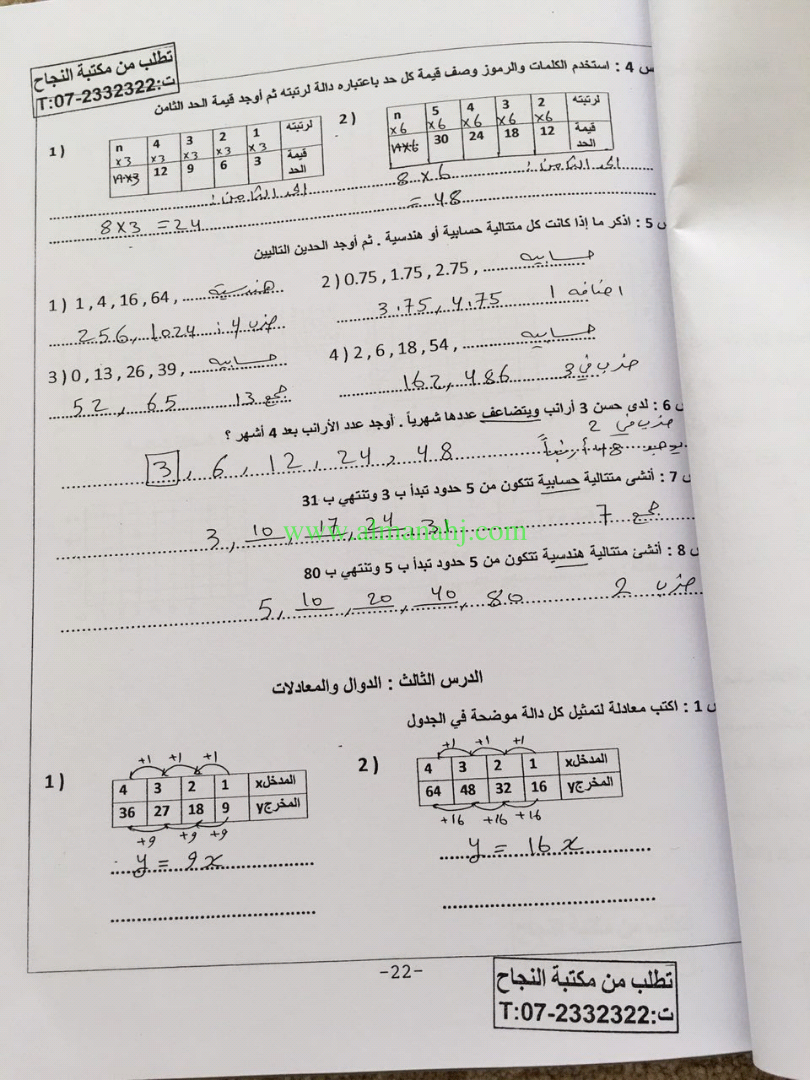 تطلب من مكتبة النجاح
ت:T:07-2332322
س 4 : استخدم الكلمات والرموز وصف قيمة كل حد باعتباره دالة لرتبته ثم أوجد قيمة الحد الثامن
1 )
لرتبته 1 2 3 4 n
×3 ×3 ×3 ×3 ×3
قيمة الحد 3 6 9 12 n×3
2 )
لرتبته 2 3 4 5 n
×6 ×6 ×6 ×6 ×6
قيمة الحد 12 18 24 30 n×6
الحد الثامن :
8 × 3 = 24
الحد الثامن :
8 × 6
= 48
س 5 : اذكر ما إذا كانت كل متتالية حسابية أو هندسية . ثم أوجد الحدين التاليين
1 ) 1 , 4 , 16 , 64 , هندسية
256 , 1024 : ضرب 4
2 ) 0.75 , 1.75 , 2.75 , حسابيه
3.75 , 4.75 اضافه 1
3 ) 0 , 13 , 26 , 39 , حسابيه
52 , 65 جمع 13
4 ) 2 , 6 , 18 , 54 , حسابيه
162 , 486 ضرب في 3
س 6 : لدى حسن 3 أرانب ويتضاعف عددها شهرياً . أوجد عدد الأرانب بعد 4 أشهر ؟
ضرب في 2
3 , 6 , 12 , 24 , 48
يوجد 48 أرنباً
س 7 : أنشى متتالية حسابية تتكون من 5 حدود تبدأ ب 3 وتنتهي ب 31
3 , 10 , 17 , 24 31 جمع 7
www.almanahj.com
س 8 : أنشئ متتالية هندسية تتكون من 5 حدود تبدأ ب 5 وتنتهي ب 80
5 , 10 , 20 , 40 , 80 ضرب 2
الدرس الثالث : الدوال والمعادلات
س 1 : اكتب معادلة لتمثيل كل دالة موضحة في الجدول
1 )
+1 +1 +1
المدخلx 1 2 3 4
المخرجy 9 18 27 36
+9 +9 +9
y = 9x
2 )
+1 +1 +1
المدخلx 1 2 3 4
المخرجy 16 32 48 64
+16 +16 +16
y = 16x
-22-
تطلب من مكتبة النجاح
ت:T:07-2332322